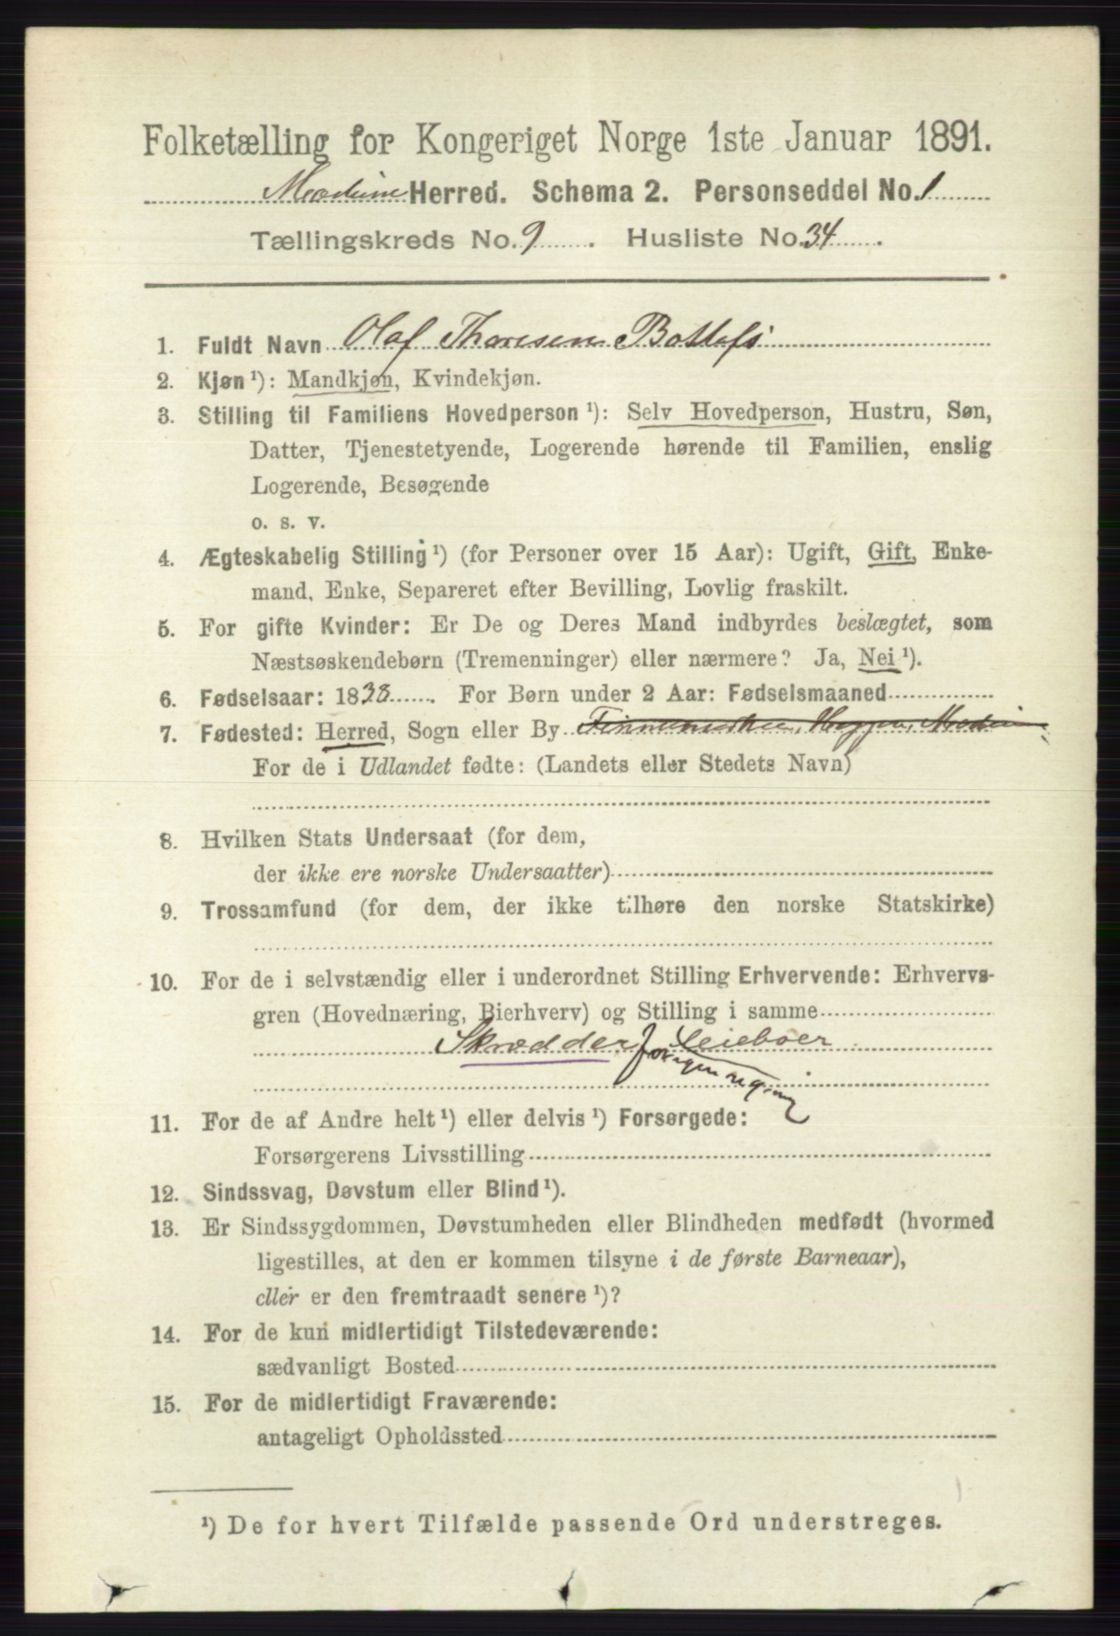 Folketælling for Kongeriget Norge 1ste Januar 1891.
Modum Herred. Schema 2. Personseddel No. 1
Tællingskreds No. 9 . Husliste No. 34 .
1. Fuldt Navn Olaf Thoresen
2. Kjøn ¹): Mandkjøn, Kvindekjøn.
3. Stilling til Familiens Hovedperson ¹): Selv Hovedperson, Hustru, Søn,
Datter, Tjenestetyende, Logerende hørende til Familien, enslig
Logerende, Besøgende
o. s. v.
4. Ægteskabelig Stilling ¹) (for Personer over 15 Aar): Ugift, Gift, Enke-
mand, Enke, Separeret efter Bevilling, Lovlig fraskilt.
5. For gifte Kvinder: Er De og Deres Mand indbyrdes beslægtet, som
Næstsøskendebørn (Tremenninger) eller nærmere? Ja, Nei ¹).
6. Fødselsaar: 1838 . For Børn under 2 Aar: Fødselsmaaned
7. Fødested: Herred, Sogn eller By
For de i Udlandet fødte: (Landets eller Stedets Navn)
8. Hvilken Stats Undersaat (for dem,
der ikke ere norske Undersaatter)
9. Trossamfund (for dem, der ikke tilhøre den norske Statskirke)
10. For de i selvstændig eller i underordnet Stilling Erhvervende: Erhvervs-
gren (Hovednæring, Bierhverv) og Stilling i samme
Skrædder, Leieboer
for egen regning
11. For de af Andre helt ¹) eller delvis ¹) Forsørgede:
Forsørgerens Livsstilling
12. Sindssvag, Døvstum eller Blind ¹).
13. Er Sindssygdommen, Døvstumheden eller Blindheden medfødt (hvormed
ligestilles, at den er kommen tilsyne i de første Barneaar),
eller er den fremtraadt senere ¹)?
14. For de kun midlertidigt Tilstedeværende:
sædvanligt Bosted
15. For de midlertidigt Fraværende:
antageligt Opholdssted
¹) De for hvert Tilfælde passende Ord understreges.